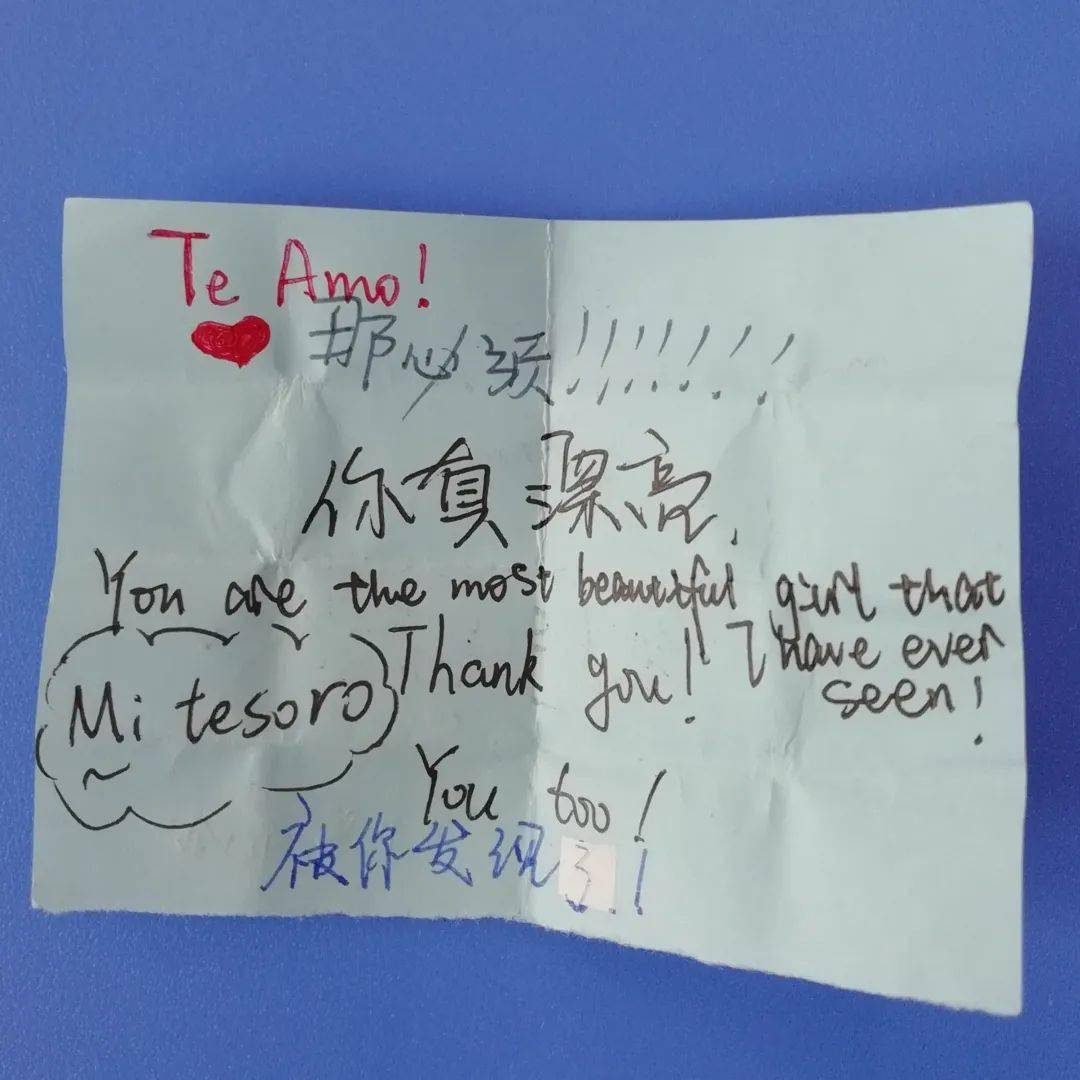 Te Amo!
那必须!!!!!!!
你真漂亮.
You are the most beautiful girl that
I have ever
seen!
Thank you!
Mi tesoro
~
You too!
被你发现了!